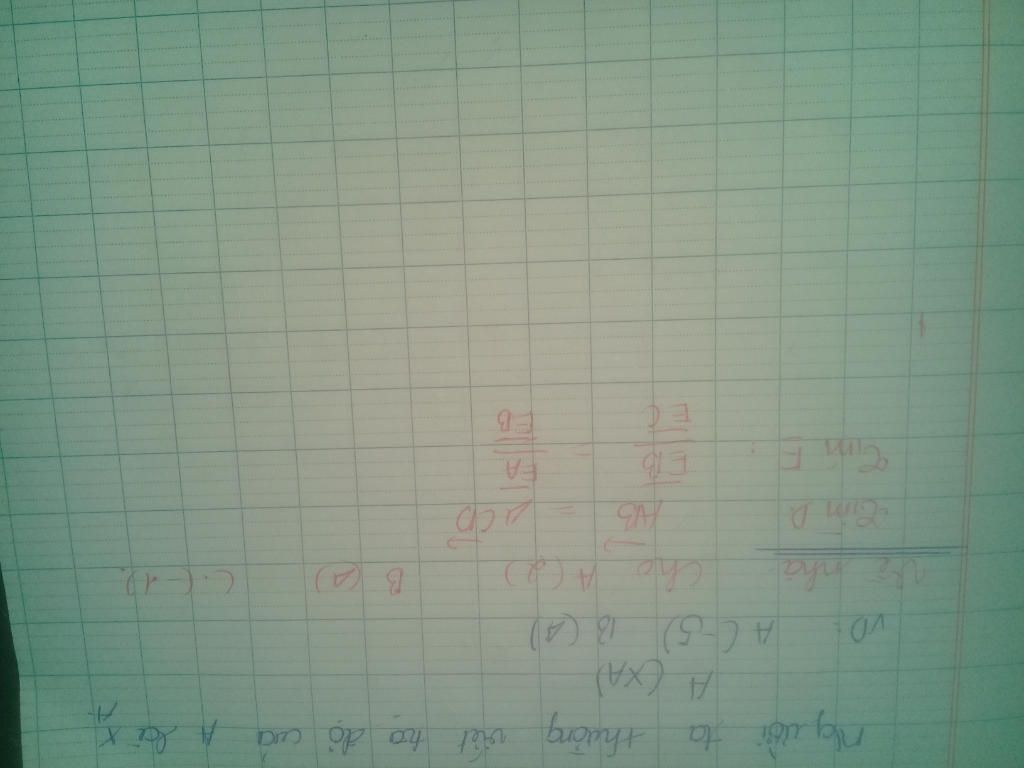 Người ta thường viết tọa độ của A là x_A
A (XA)
VD: A (-5) B (1)
Về nhà Cho A (2) B (1) C (-1).
Tìm D \overrightarrow{AB} = \overrightarrow{CD}
Tìm E : \frac{\overline{EB}}{\overline{EC}} = \frac{\overline{EA}}{\overline{EB}}